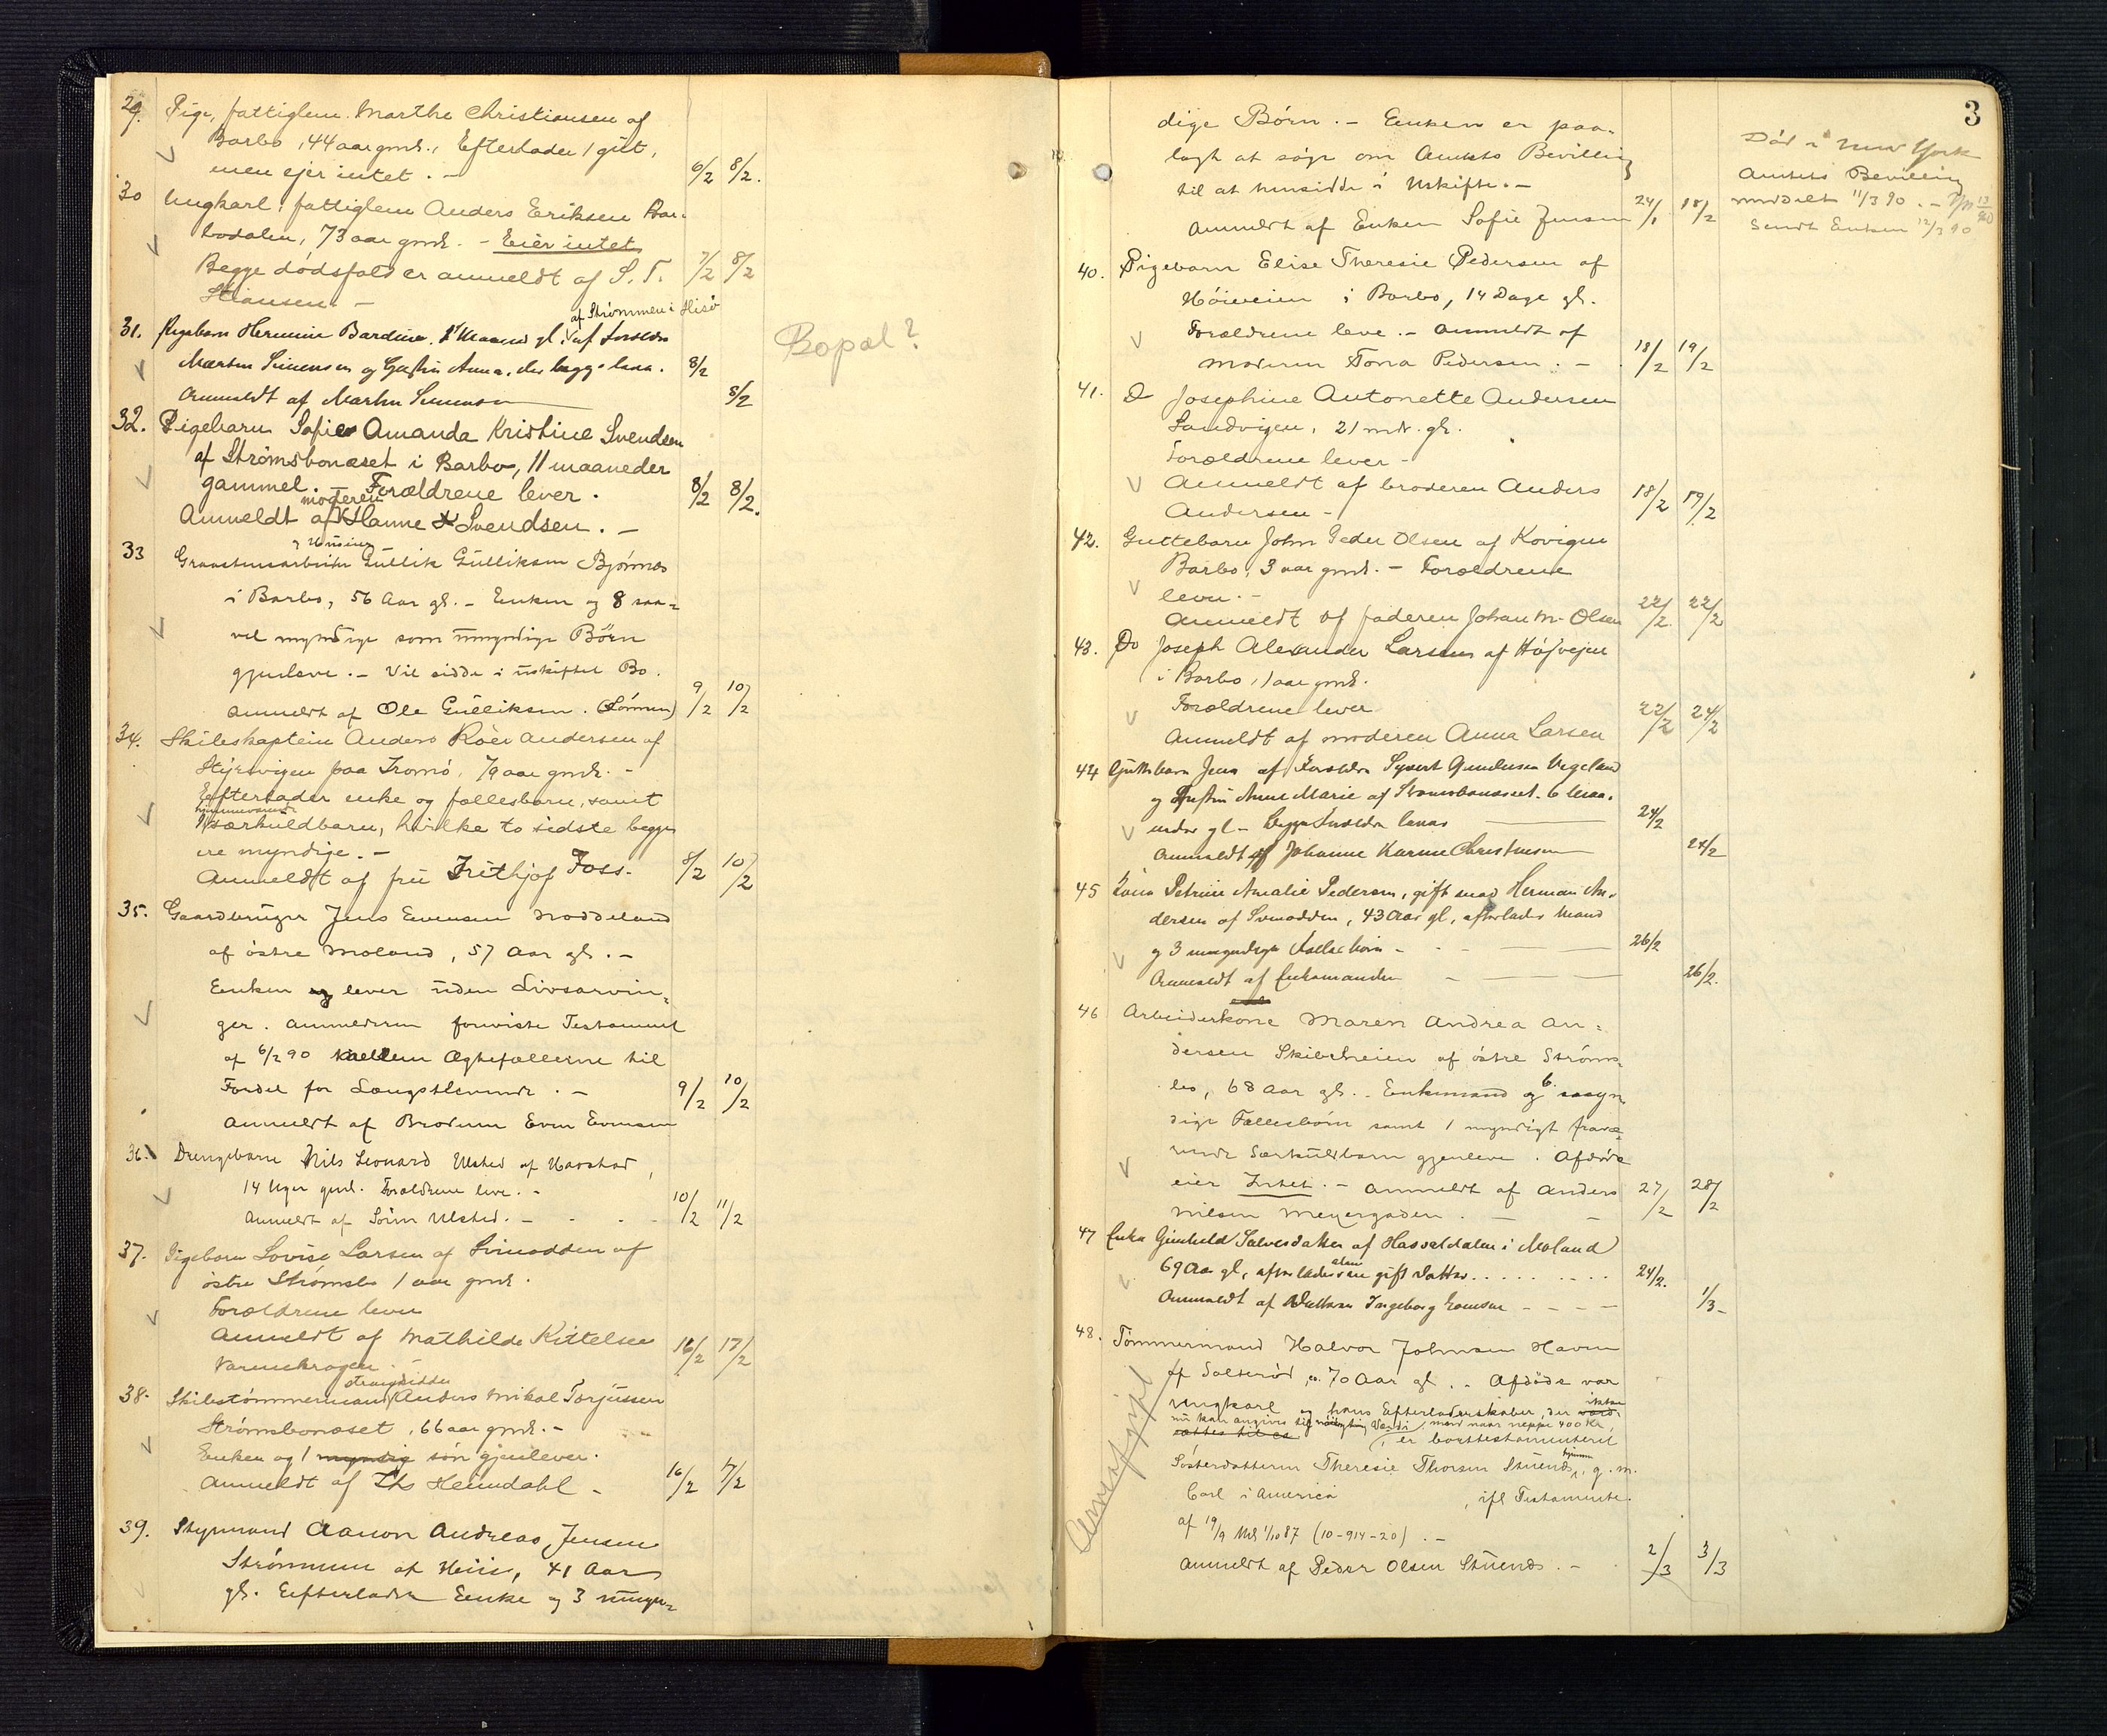 29. Pige, fattiglem Marthe Christiansen af
Barbo, 44 aar gml., Efterlader 1 gut,
men ejer intet. — 6/2 8/2.
30 Ungkarl, fattiglem Anders Eriksen Bar-
bodalen, 73 aar gml. — Eier intet 7/2 8/2
Begge dødsfald er anmeldt af S. T.
Stiansen. —
af Strømmen i Hisø
31. Pigebarn Hermine Bardine, 1 Maaned gl. af Forældre
Marten Simensen og Hustru Anna, der begge leve. 8/2
Anmeldt af Martin Simensen 8/2
Bopæl?
32. Pigebarn Sofie Amanda Kristine Svendsen
af Strømsbonæset i Barbo, 11 maaneder
gammel. Forældrene lever. 8/2 8/2.
moderen
Anmeldt af Hanne Svendsen. —
33 Graastensarbeider Gullik Gulliksen Bjørnæs
i Barbo, 56 Aar gl. — Enken og 8 saa-
vel myndige som umyndige Børn
gjenleve. — Vil sidde i uskiftet Bo.
Anmeldt af Ole Gulliksen. (Sønnen) 9/2 10/2
34. Skibskaptein Anders Röer Andersen af
paa Tromø, 79 aar gml. —
Efterlader enke og fællesbarn, samt
særkuldbarn, hvilke to sidste begge
ere myndige. —
Anmeldt af fru Frithjof Foss. 8/2 10/2
35. Gaardbruger Jens Evensen Noddeland
af østre Moland, 57 Aar gl. —
Enken lever uden Livsarvin-
ger. Anmelderen foreviste Testament
af 6/2 90 mellem Ægtefællerne til
Fordel for Længstlevende. — 9/2 10/2
Anmeldt af Broderen Even Evensen
36. Drengebarn Nils Leonard Ulsted af Havstad,
14 Uger gml. Forældrene leve. —
Anmeldt af Sören Ulsted. — 10/2 11/2
37. Pigebarn Lovise Larsen af Svinodden af
østre Strømsbo 1 aar gml.
Forældrene lever
Anmeldt af Mathilde Kittelsen 16/2 17/2
Varmekrogen. —
38. Skibstømmermand Anders Mikal Torjussen
Strømsbonæset, 66 aar gml. —
Enken og 1 myndig søn gjenlever.
Anmeldt af Ths Heimdahl — 16/2 17/2
39. Styrmand Aanon Andreas Jensen
Strømmen af Hisø, 41 Aar
gl. Efterlader Enke og 3 umyn-
3
dige Børn. — Enken er paa-
lagt at søge om Amtets Bevilling
til at hensidde i Uskifte. —
Anmeldt af Enken Sofie Jensen 24/1 18/2
Död i New York
Amtets Bevilling
meddelt 11/3 90. —
Sendt Enken 12/3 90
40. Pigebarn Elise Theresie Pedersen af
Höiveien i Barbo, 14 Dage gl.
Forældrene leve. — Anmeldt af
Moderen Tona Pedersen. — 18/2 19/2
41. Do Josephine Antonette Andersen
Sandvigen, 21 mdr. gl.
Forældrene lever —
Anmeldt af broderen Anders
Andersen — 18/2 19/2
42. Guttebarn John Peder Olsen af Kovigen
Barbo, 3 aar gml. — Forældrene
lever. —
Anmeldt af faderen Johan M. Olsen 22/2. 22/2
43. Do Joseph Alexander Larsen af Højvejen
i Barbo, 1 aar gml.
Forældrene lever
Anmeldt af moderen Anna Larsen 22/2 24/2
44 Guttebarn Jens af Forældre Syvert Gundersen Vegeland
og Hustru Anne Marie af Strømsbonæset. 6 Maa-
neder gl — begge Forældre lever 24/2
Anmeldt af Johanne Karine Christensen 24/2
45 Kona Petrine Amalie Pedersen, gift med Herman An-
dersen af Svinodden, 43 Aar gl, efterlader Mand
og 3 umyndige Fælles børn — 26/2
Anmeldt af Enkemanden — 26/2.
46 Arbeiderkone Maren Andrea An-
dersen Skibeheien af østre Strøms-
bo, 68 Aar gl. . Enkemand og 6 myn-
dige Fællesbörn samt 1 myndigt fravæ-
rende Særkuldbarn gjenleve. Afdøde
eier Intet. — Anmeldt af Anders 27/2 28/2
Nilsen Meyergaden. —
47 Enke Gunhild Salvesdatter af Hasseldalen i Moland
69 Aar gl, efterlader en gift Datter . . . . 24/2.
Anmeldt af Datteren Ingeborg — 1/3 —
48. Tömmermand Halvor Johnsen Haven
af Salterød, 70 Aar gl. . Afdøde var
Ungkarl og hans Efterladenskaber, der ikke
nu kan angives til nöiagtig Værdi, men naar neppe 400 Kr,
er borttestamenteret
Søsterdatteren Theresie Thorsen Stuenes, g. m.
Carl i America, ifl Testamente.
af 19/9 1/10 87 (10-914-20). —
Anmeldt af Peder Olsen Stuenes. — 2/3 3/3
Arveafgift